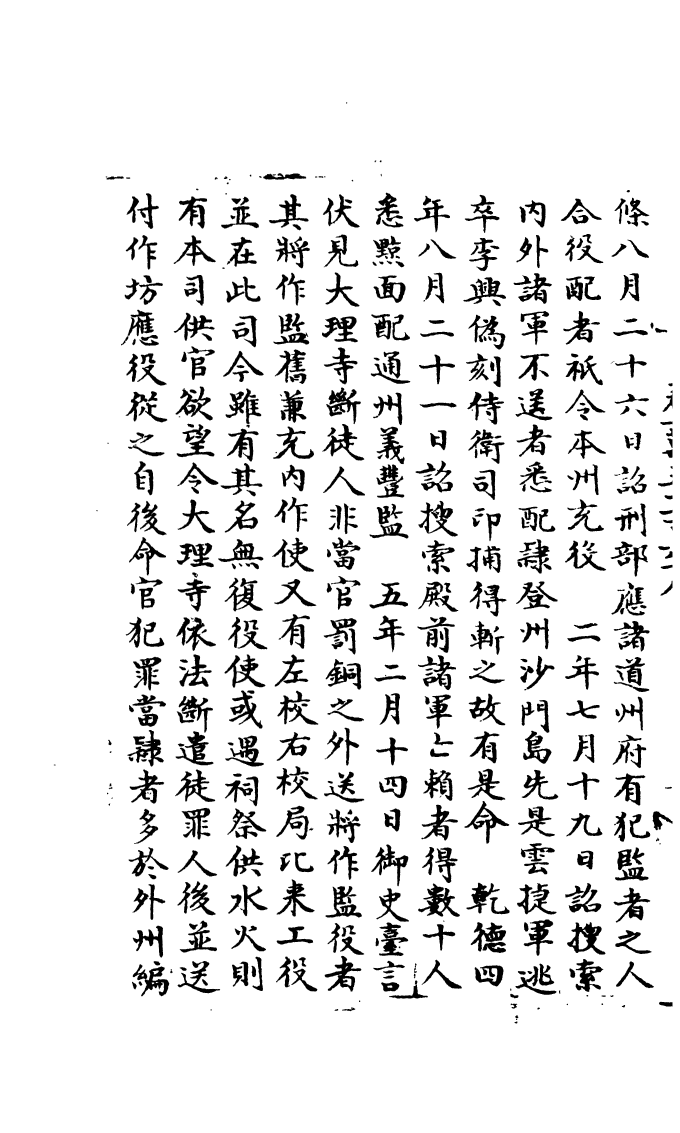 條八月二十六日詔刑部應諸道州府有犯監者之人
合役配者衹令本州充役　二年七月十九日詔搜索
內外諸軍不逞者悉配隷登州沙門島先是雲捷軍逃
卒李興偽刻侍衛司印捕得斬之故有是命　乾德四
年八月二十一日詔搜索殿前諸軍亡賴者得數十人
悉黥面配通州義豐監　五年二月十四日御史臺言
伏見大理寺斷徒人非當官罰銅之外送將作監役者
其將作監舊兼充內作使又有左校右校局比来工役
並在此司今雖有其名無復役使或遇祠祭供水火則
有本司供官欲望令大理寺依法斷遣徒罪人後並送
付作坊應役從之自後命官犯罪當隷者多於外州編